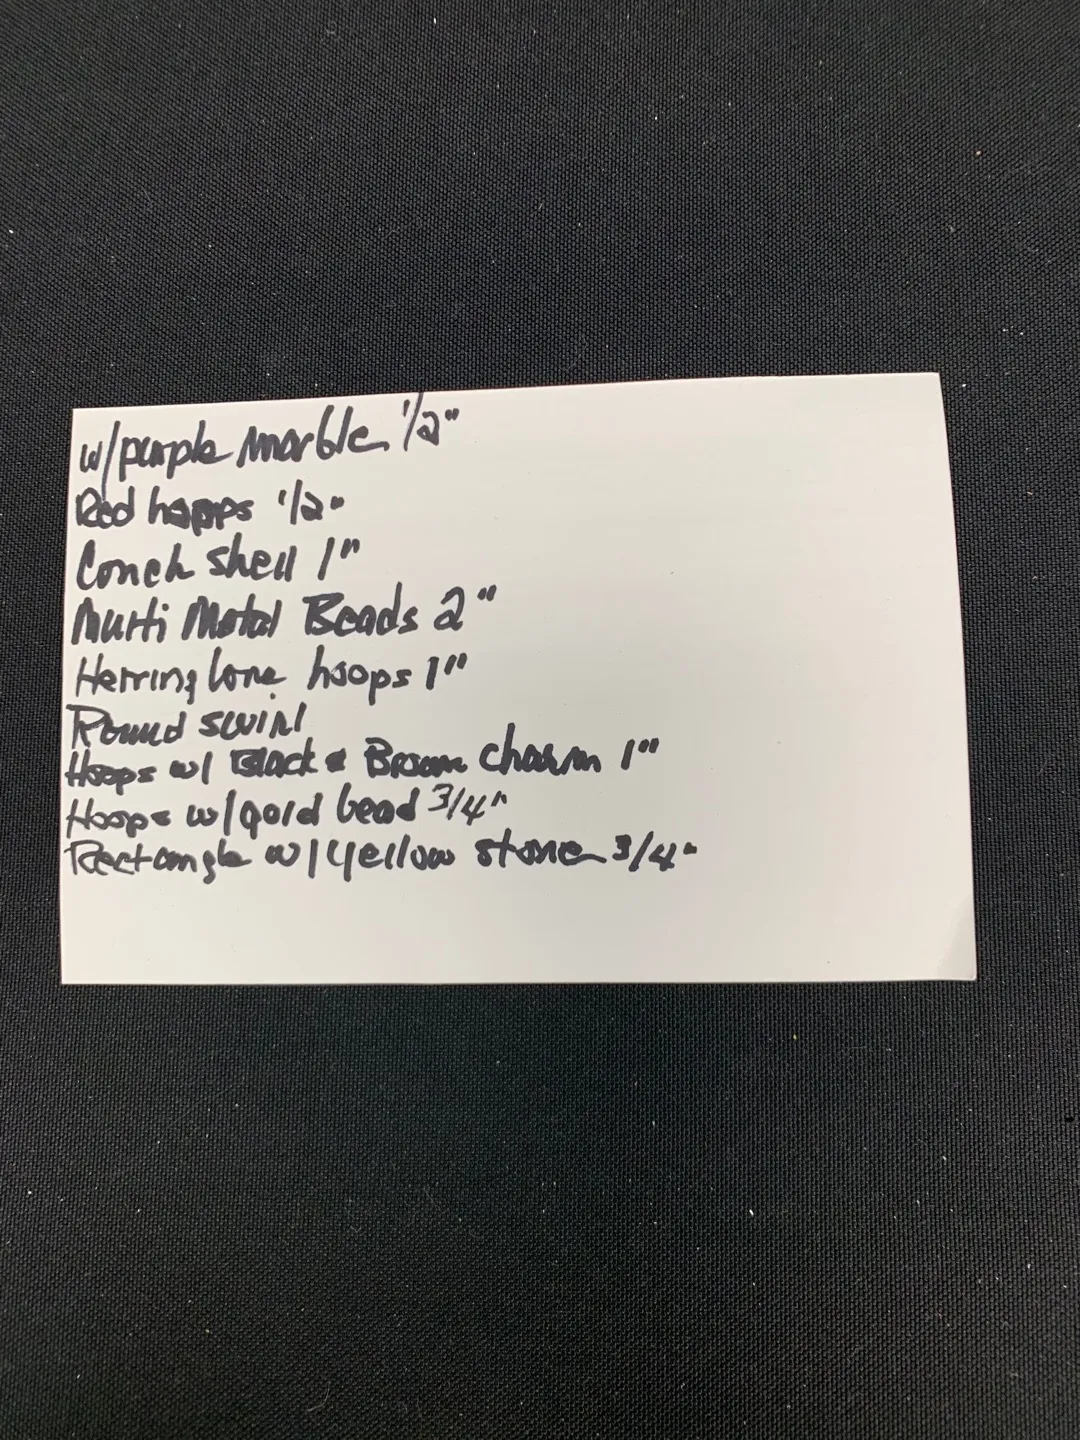 w/purple marble 1/2"
Red hoops 1/2"
Conch shell 1"
Multi Metal Beads 2"
Herringbone hoops 1"
Round swirl
Hoops w/ Black & Brown charm 1"
Hoops w/gold bead 3/4"
Rectangle w/yellow stone 3/4"